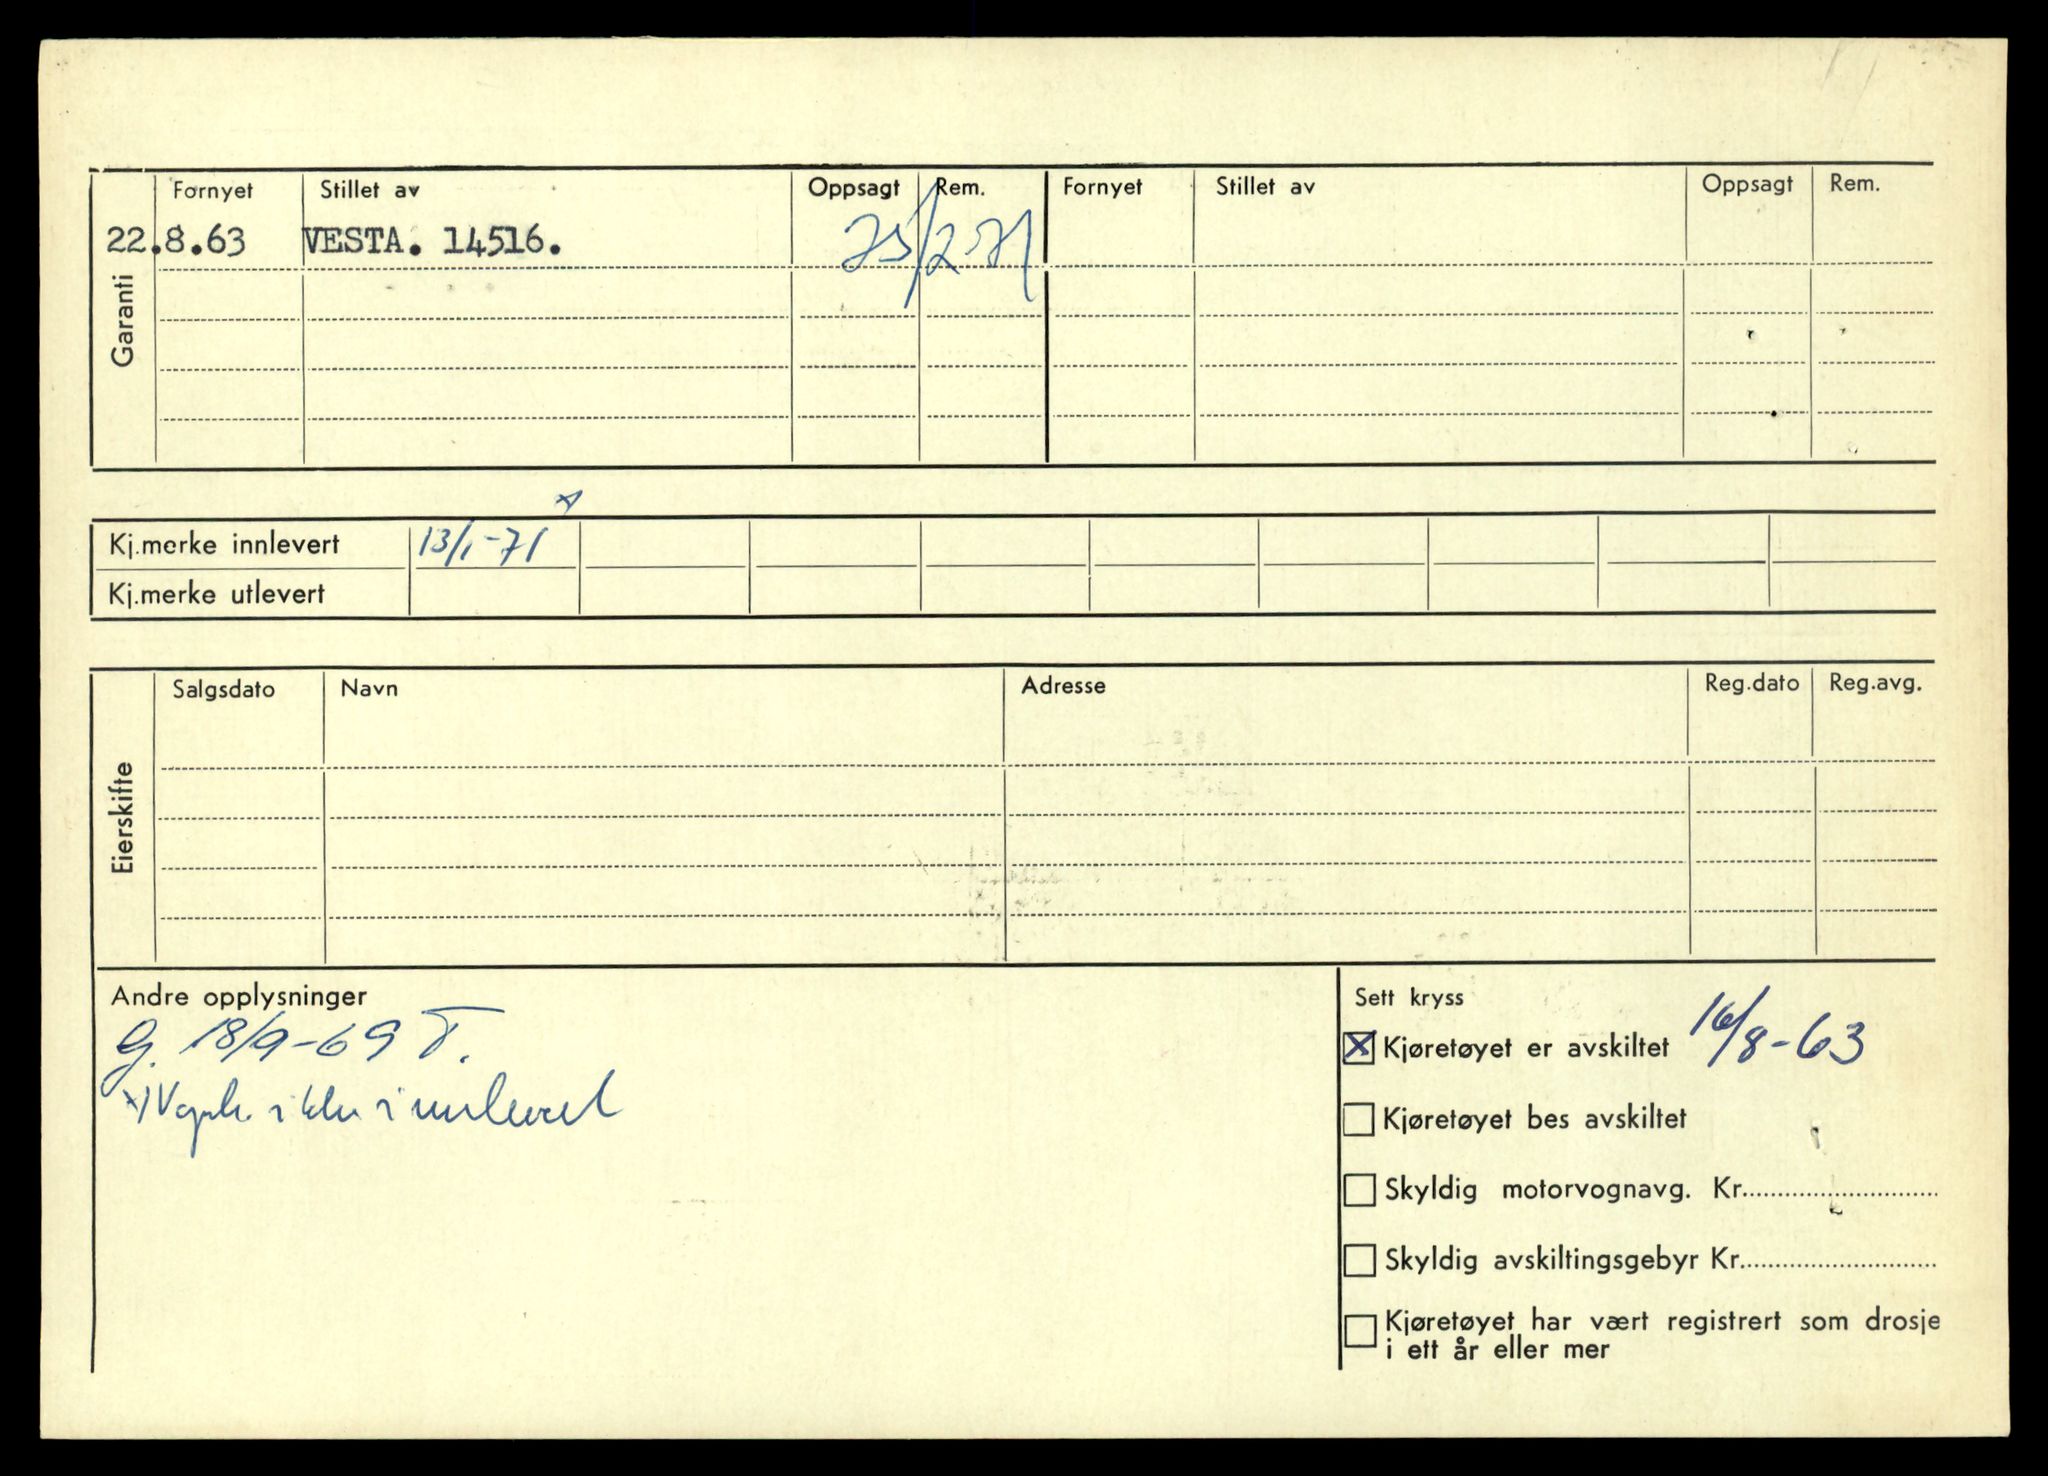 Garanti
Fornyet Stillet av Oppsagt Rem. Fornyet Stillet av Oppsagt Rem.
22.8.63 VESTA. 14516. 25/2 71
Kj.merke innlevert 13/1-71 x
Kj.merke utlevert
Eierskifte
Salgsdato Navn Adresse Reg.dato Reg.avg.
Andre opplysninger
G. 18/9-69 T.
x) ikke innlevert
Sett kryss
Kjøretøyet er avskiltet 16/8-63
Kjøretøyet bes avskiltet
Skyldig motorvognavg. Kr.
Skyldig avskiltingsgebyr Kr.
Kjøretøyet har vært registrert som drosje
i ett år eller mer